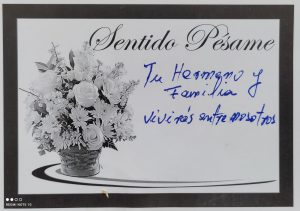 Sentido Pésame
Tu Hermano y
Familia
vivirás entre nosotros
REDMI NOTE 10